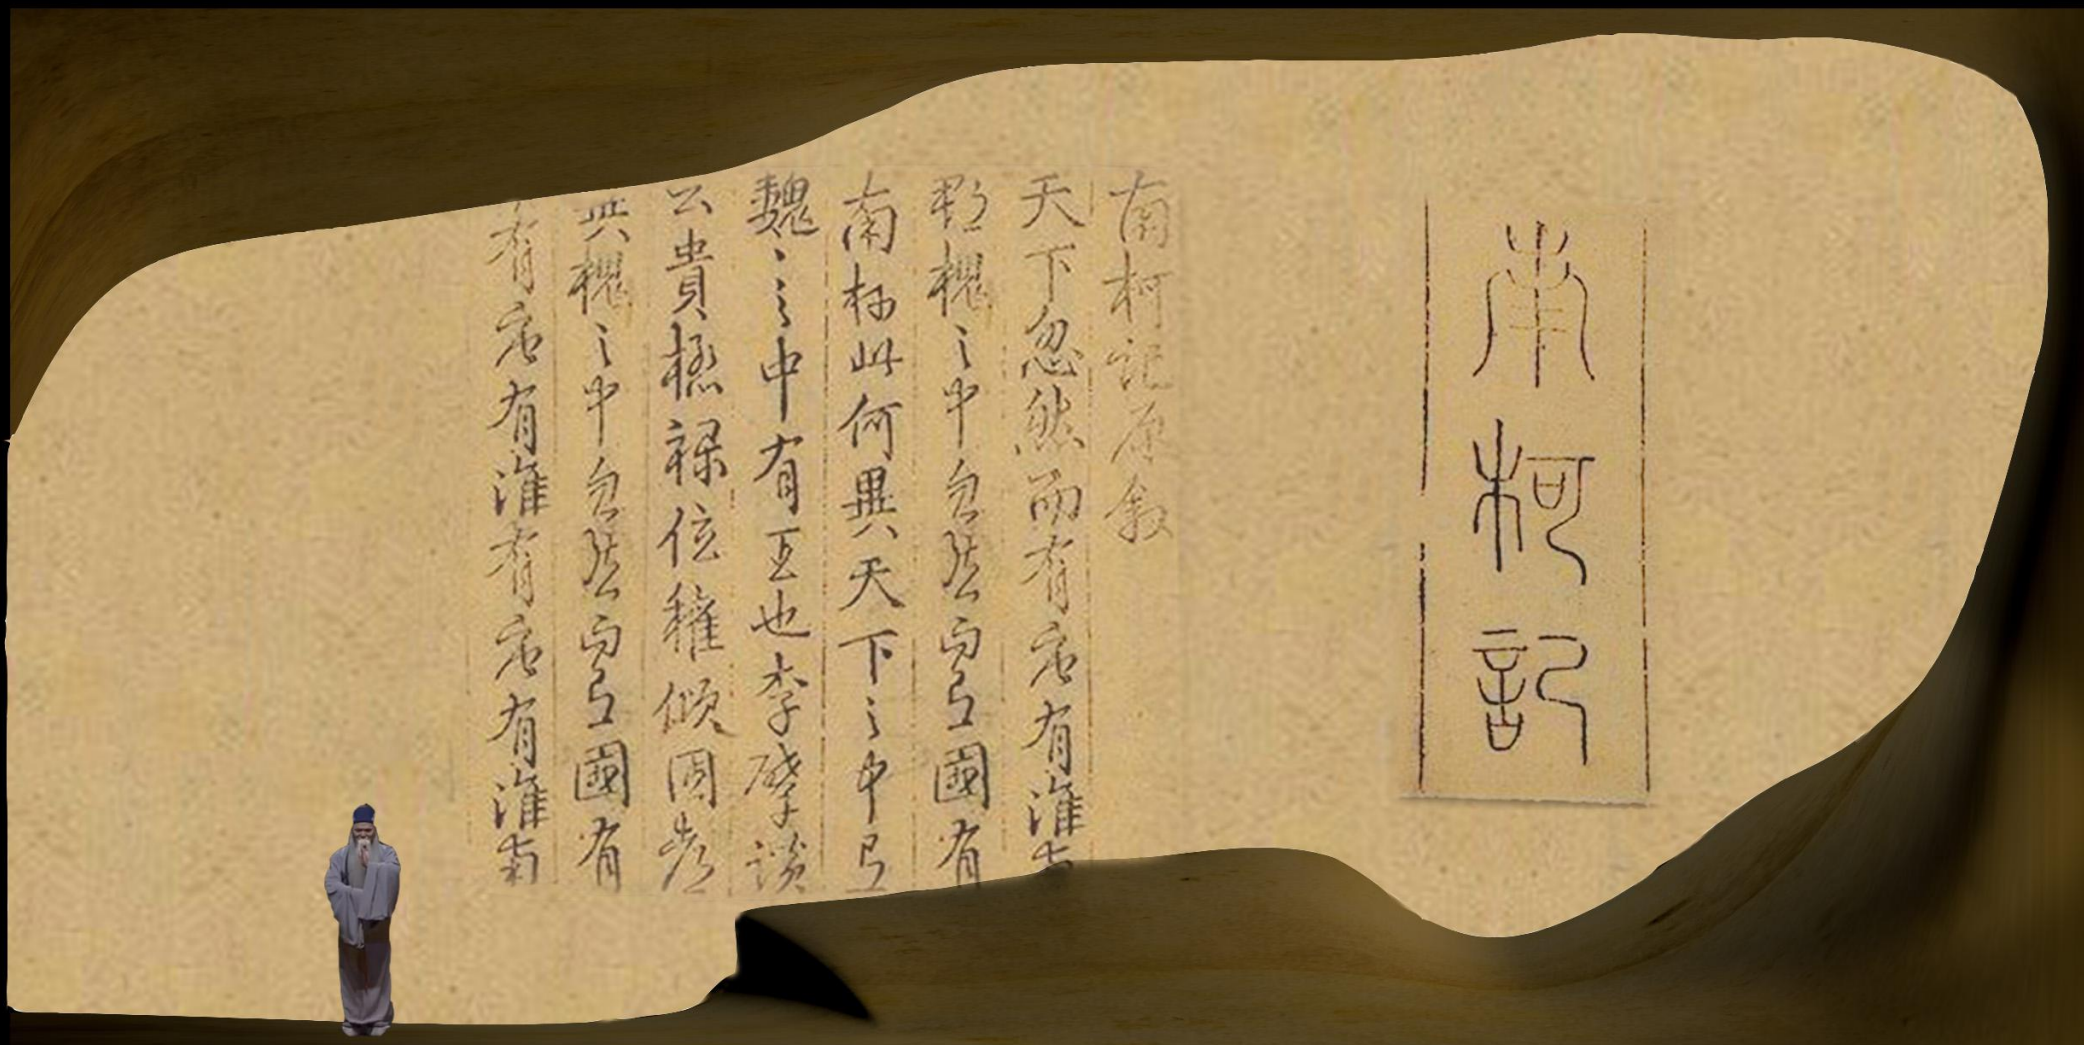 南柯記
南柯記原敘
天下忽然而有唐有淮南
郡槐之中忽然而有國有
南柯此何異天下之中有
魏々之中有王也李肇讚
云貴極祿位權傾國都
槐之中忽然而有國有
有唐有淮有唐有淮南